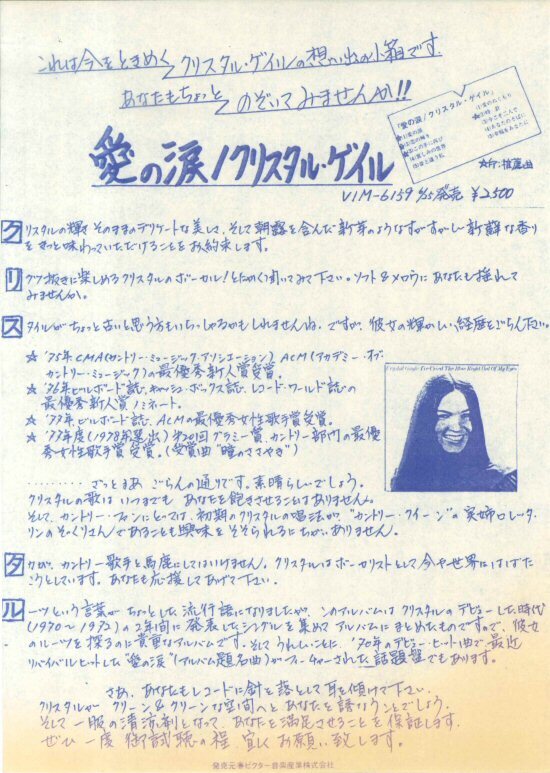 これは今をときめくクリスタル・ゲイルの想い出の小箱です。
あなたもちょっとのぞいてみませんか!!
「愛の涙/クリスタル・ゲイル」
愛の涙/クリスタル・ゲイル
☆印:推薦曲
VIM-6159 4/5発売 ¥2,500
クリスタルの輝きそのままのデリケートな美しさ、そして朝露を含んだ新芽のようなすがすがしい新鮮な香り
をきっと味わっていただけることをお約束します。
リクツ抜きに楽しめるクリスタルのボーカル!とにかく聞いてみて下さい。ソフト&メロウにあなたも揺れて
みませんか。
スタイルがちょっと古いと思う方もいらっしゃるかもしれませんね。ですが、彼女の輝かしい経歴をごらん下さい。
☆ '75年CMA(カントリー・ミュージック・アソシエーション) ACM(アカデミー・オブ・
カントリー・ミュージック)の最優秀新人賞受賞。
☆ '76年ビルボード誌、キャッシュ・ボックス誌、レコード・ワールド誌の
最優秀新人賞ノミネート。
☆ '77年ビルボード誌、ACMの最優秀女性歌手賞受賞。
☆ '77年度(1978年選出)第20回グラミー賞、カントリー部門の最優
秀女性歌手賞受賞。(受賞曲"瞳のささやき")
Crystal Gayle I've Cried The Blue Right Out Of My Eyes
‥‥‥‥ ざっとまあ ごらんの通りです。素晴らしいでしょう。
クリスタルの歌は いつまでも あなたを飽きさせることはありません。
そして、カントリー・ファンにとっては、初期のクリスタルの唱法が"カントリー・クイーン"の実姉ロレッタ・
リンのそっくりさんであることも興味をそそられるにちがいありません。
タカが、カントリー歌手と馬鹿にしてはいけません。クリスタルはボーカリストとして今や世界にはばた
こうとしています。あなたも応援してあげて下さい。
ルーツという言葉がちょっとした流行語になりましたが、このアルバムはクリスタルのデビューした時代
(1970〜1972)の2年間に発表したシングルを集めてアルバムにまとめたものですので、彼女
のルーツを探るのに貴重なアルバムです。そしてうれしいことに'70年のデビュー・ヒット曲で最近
リバイバルヒットした"愛の涙"(アルバム題名曲)がフィーチャーされた話題盤でもあります。
さあ、あなたもレコードに針を落として耳を傾けて下さい。
クリスタルが グリーン&クリーンな空間へと あなたを誘なうことでしょう。
そして一服の清涼剤となって、あなたを満足させることを保証します。
ぜひ一度 御試聴の程、宜しくお願い致します。
発売元 ビクター音楽産業株式会社